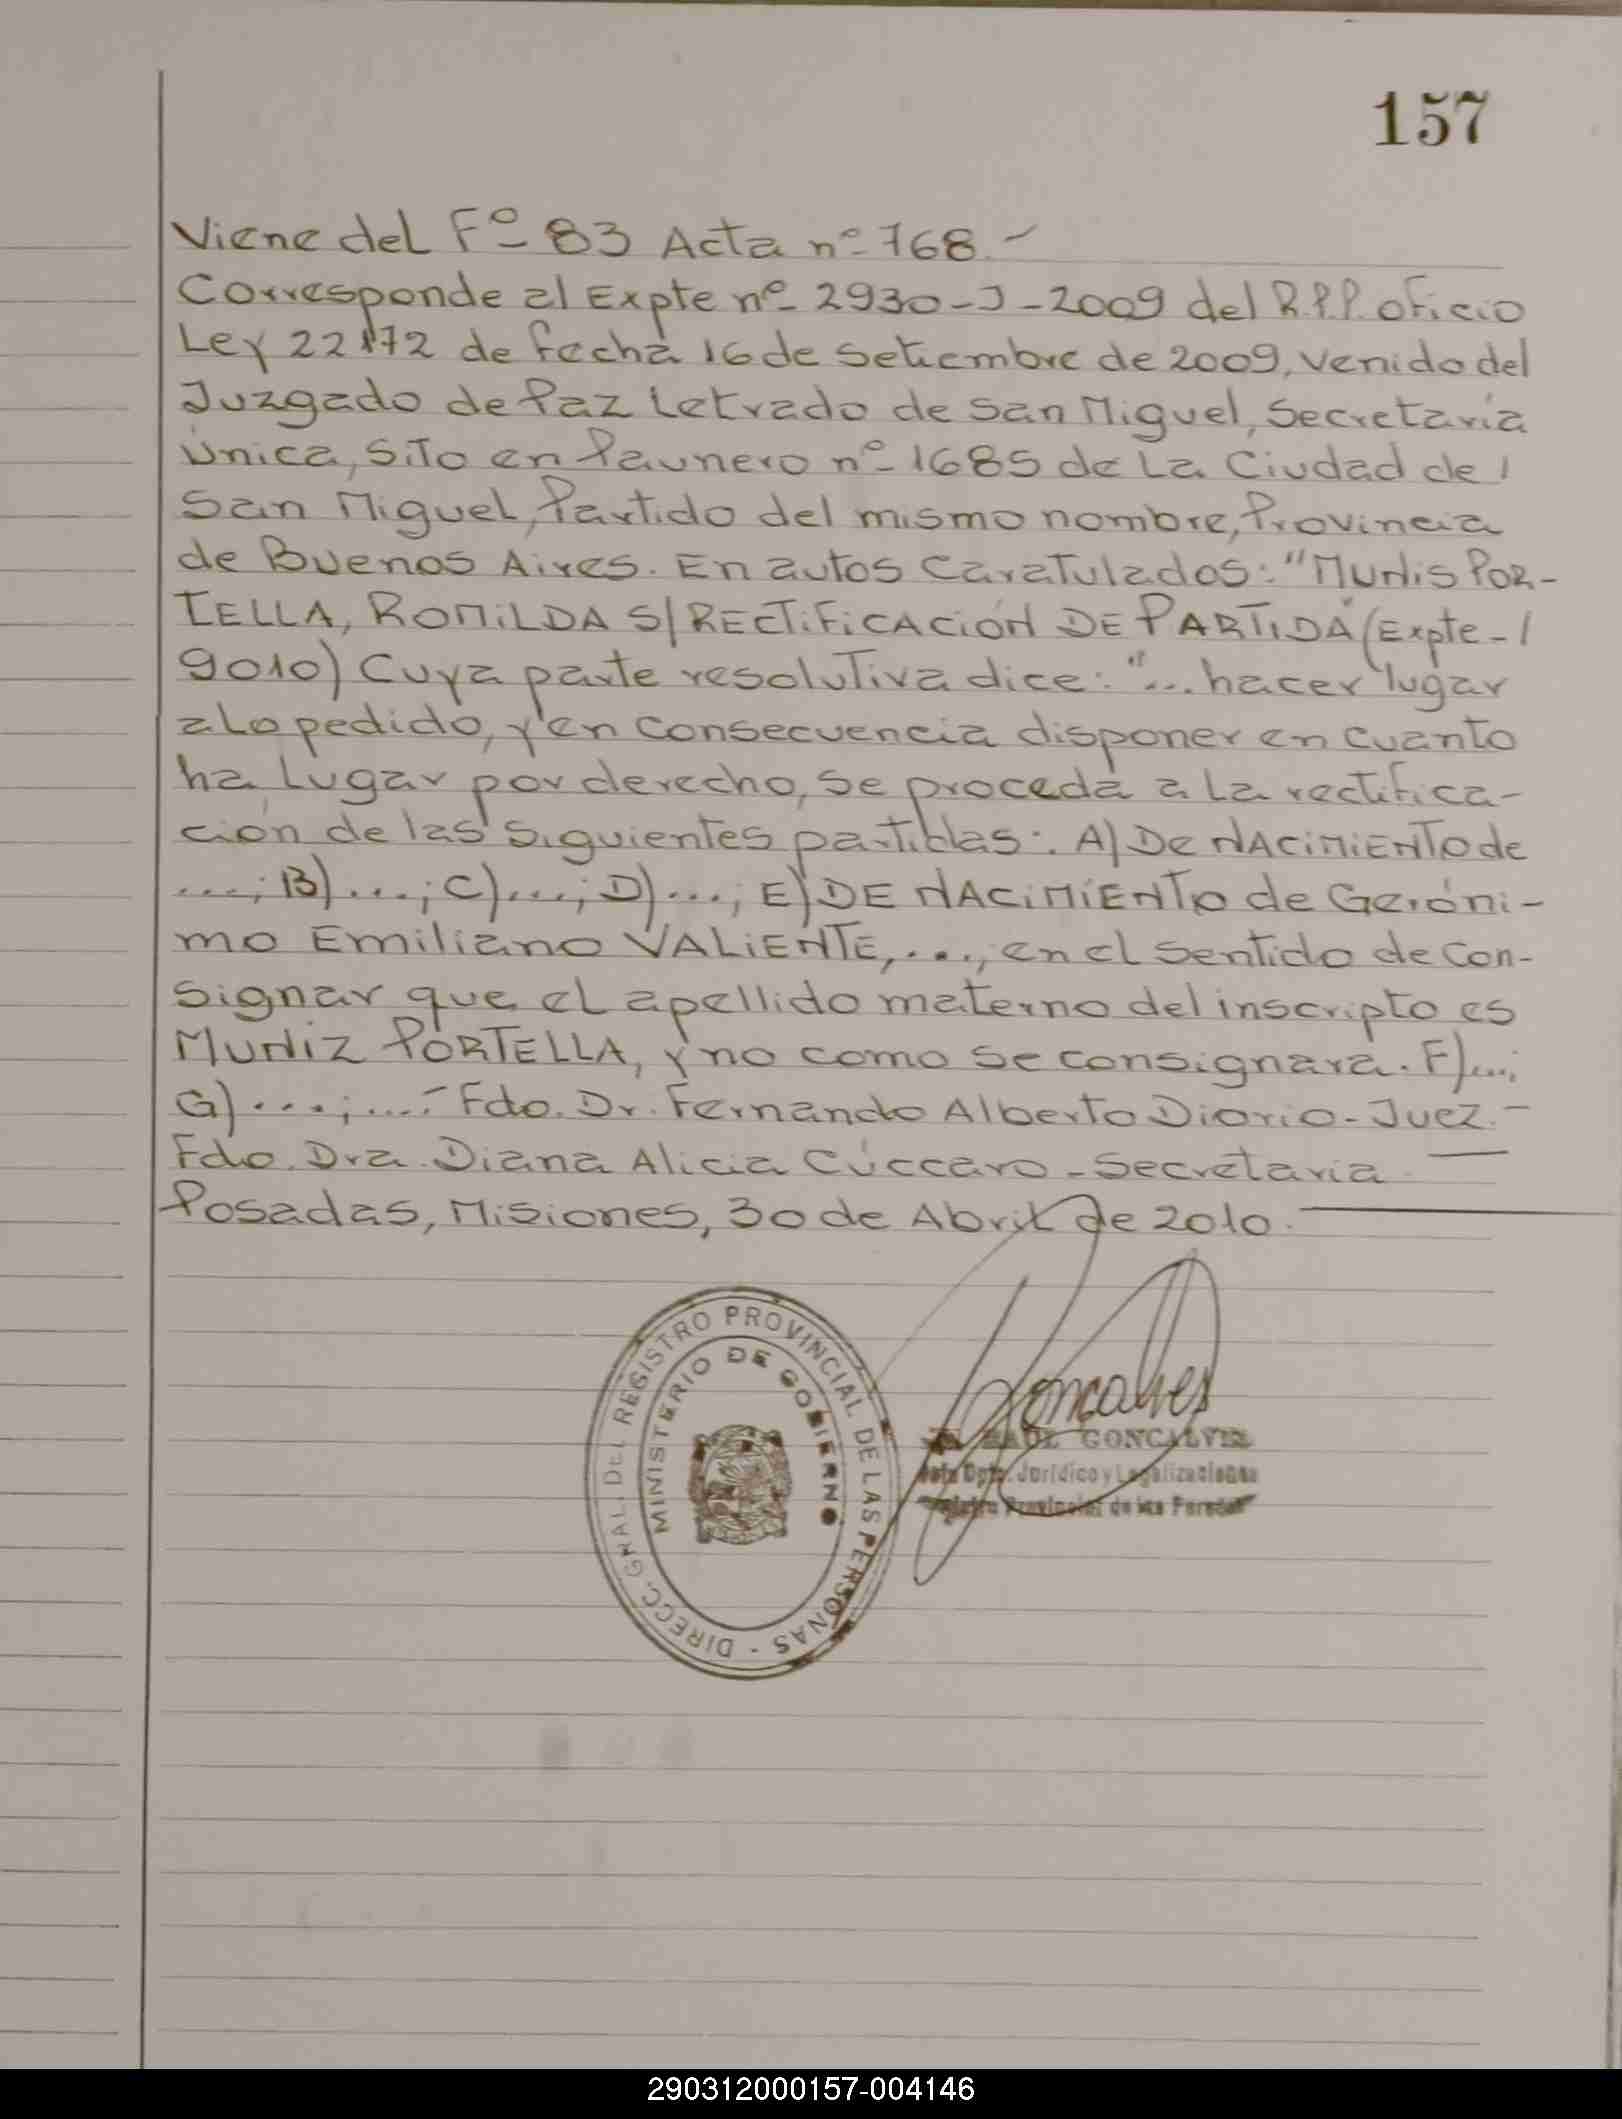 157
Viene del Fº 83 Acta nº 768.-
Corresponde al Expte nº 2930-J-2009 del R.P.P. oficio
Ley 22172 de fecha 16 de Setiembre de 2009, venido del
Juzgado de Paz Letrado de San Miguel, Secretaría
Única, Sito en Paunero nº 1685 de La Ciudad de /
San Miguel, Partido del mismo nombre, Provincia
de Buenos Aires. En autos caratulados: "MUNIS POR-
TELLA, ROMILDA S/RECTIFICACIÓN DE PARTIDA" (Expte - /
9010) Cuya parte resolutiva dice: "... hacer lugar
a lo pedido, y en consecuencia disponer en cuanto
ha lugar por derecho, se proceda a la rectifica-
ción de las siguientes partidas: A) DE NACIMIENTO de
...; B) ...; C) ...; D) ...; E) DE NACIMIENTO de Geróni-
mo Emiliano VALIENTE, ..., en el sentido de con-
signar que el apellido materno del inscripto es
MUNIZ PORTELLA, y no como se consignara. F) ...;
G) ...; ...." Fdo. Dr. Fernando Alberto Diorio - Juez.-
Fdo. Dra. Diana Alicia Cúccaro - Secretaria.
Posadas, Misiones, 30 de Abril de 2010.
DIRECC. GRAL. DEL REGISTRO PROVINCIAL DE LAS PERSONAS -
MINISTERIO DE GOBIERNO
Goncalves
RAUL GONCALVES
Jefe Dpto. Jurídico y Legalizaciones
Registro Provincial de las Personas
290312000157-004146